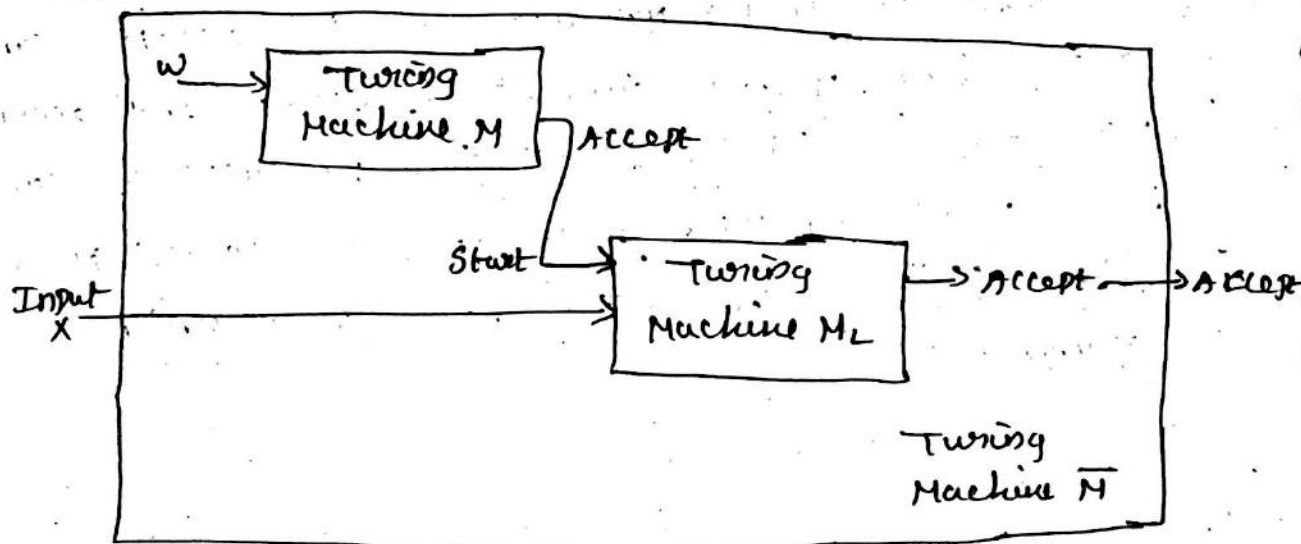 w
Turing
Machine M
Accept
Start
Input
X
Turing
Machine M_L
Accept
Accept
Turing
Machine M̅